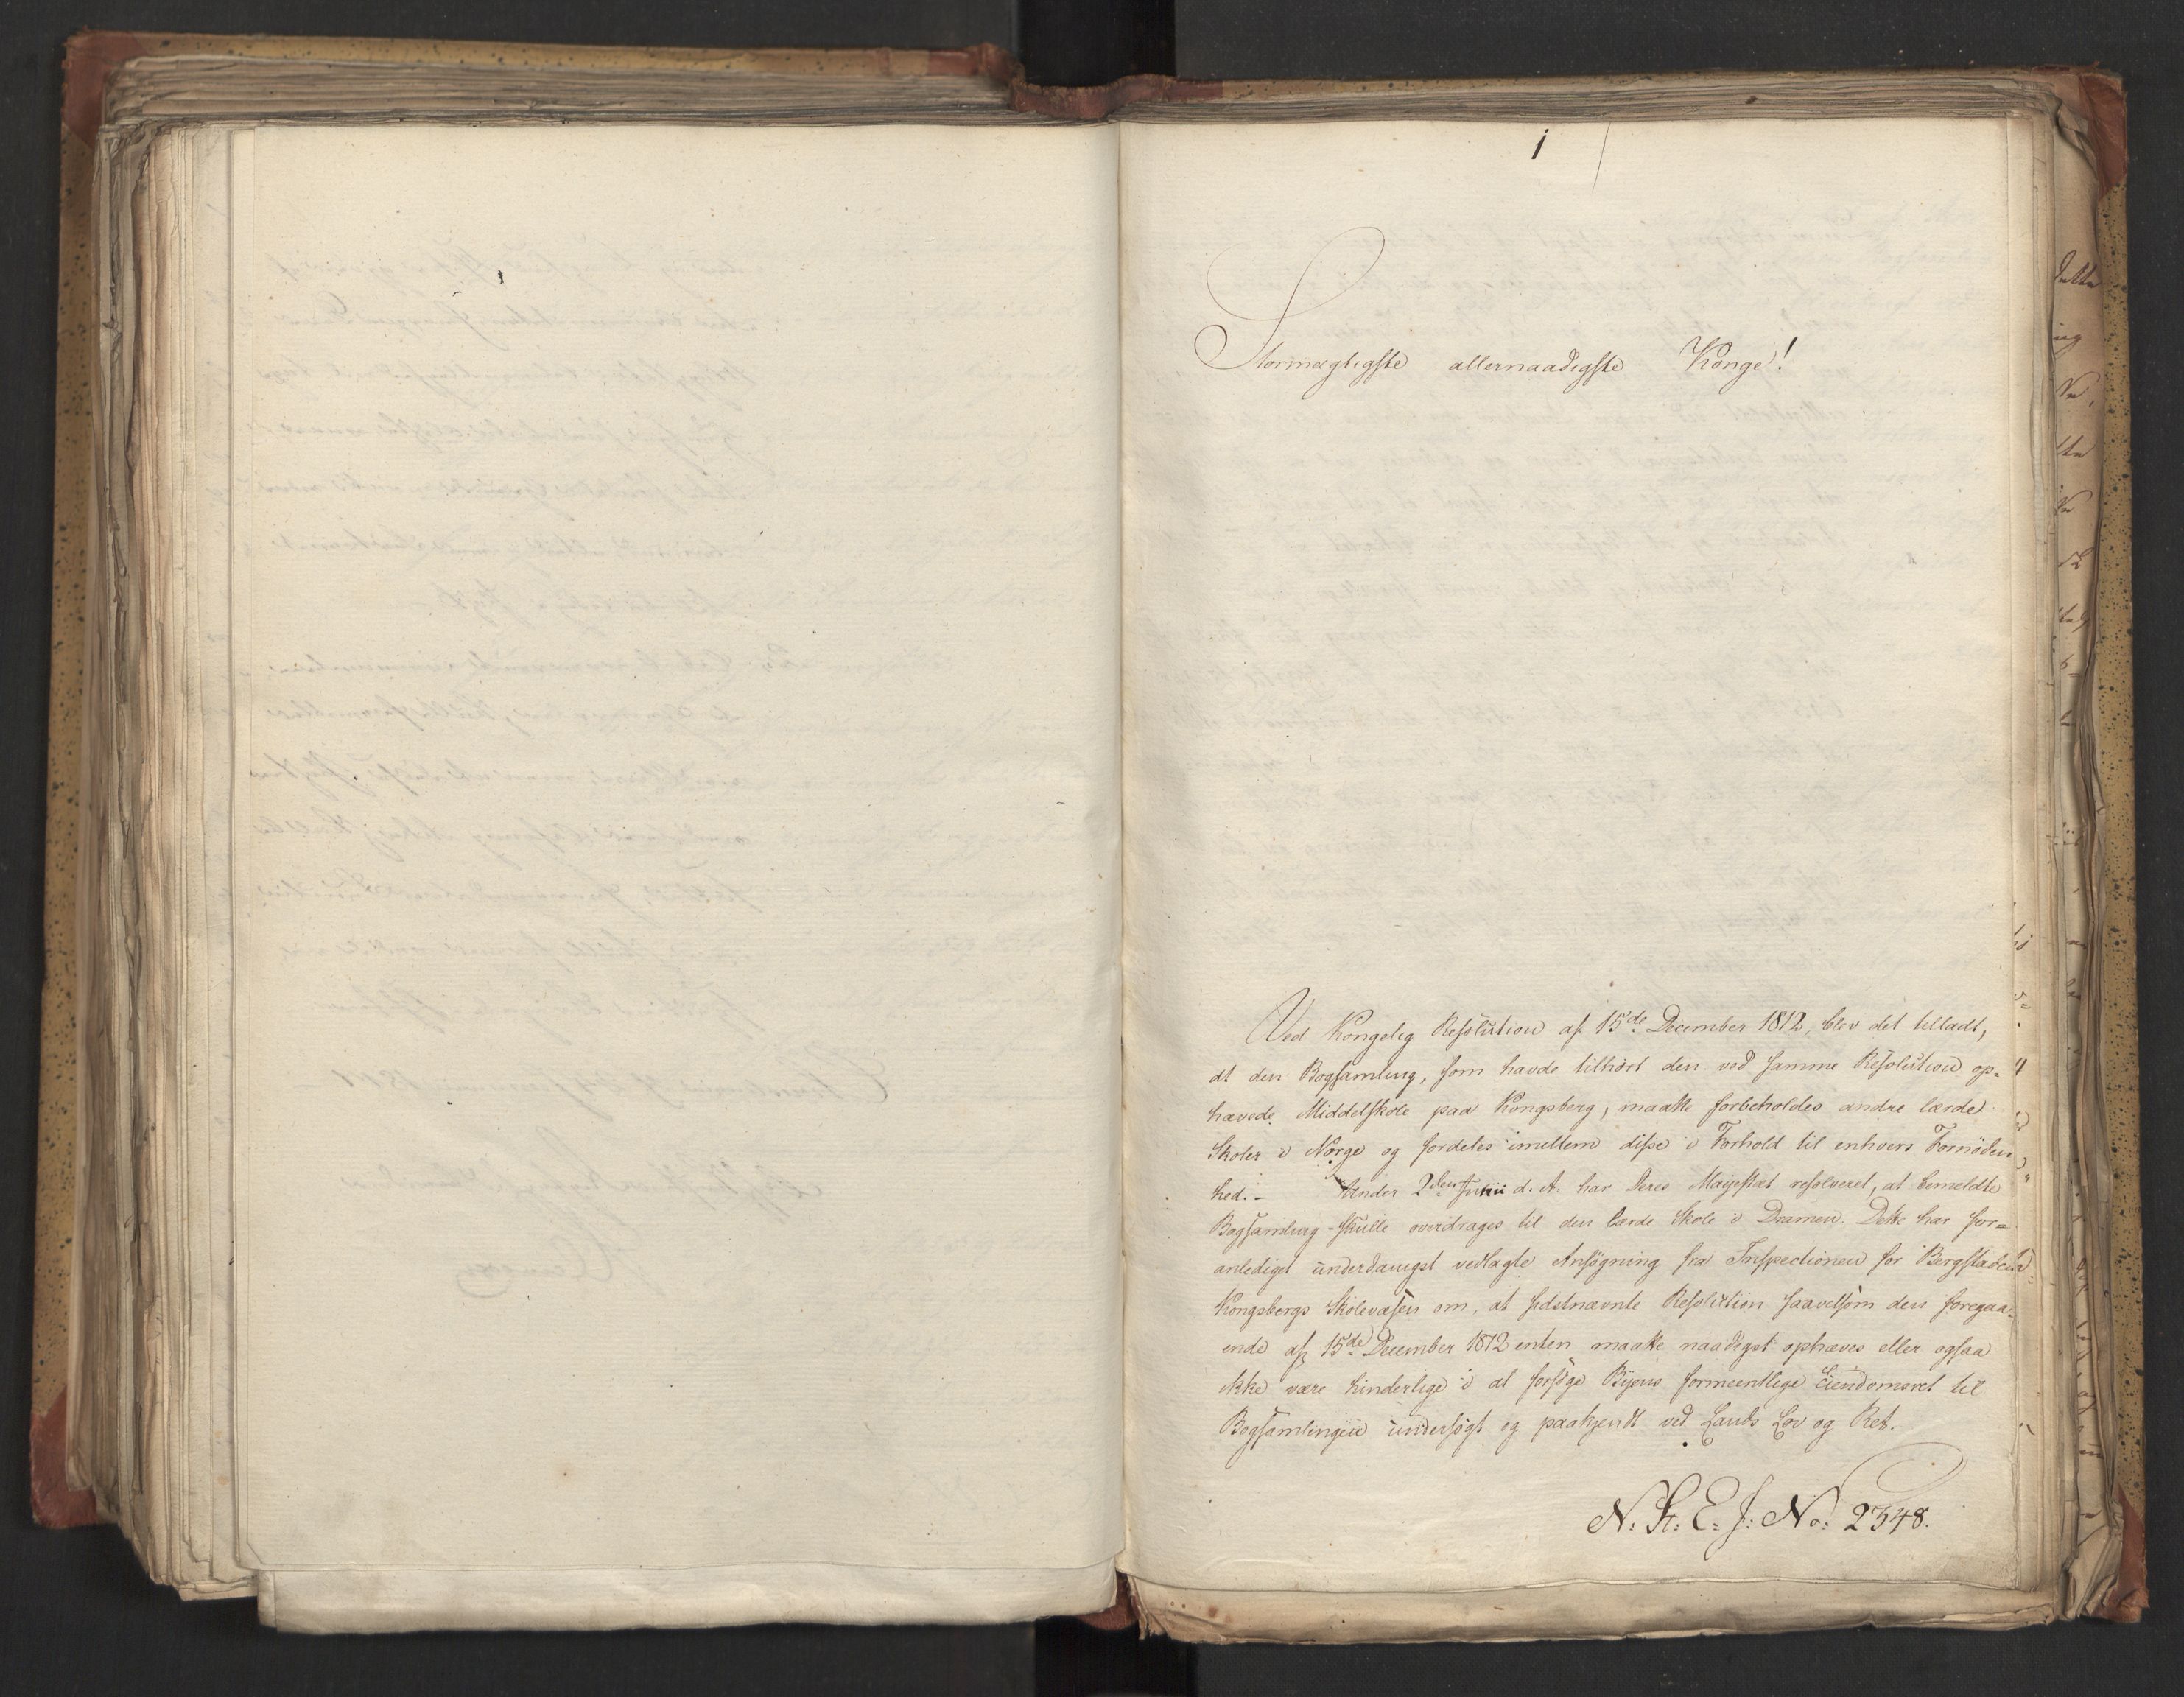 1
Stormægtigste allernaadigste Konge!
Ved Kongelig Resolution af 15de December 1812, blev det tilladt,
at den Bogsamling, som havde tilhört den ved samme Resolution op=
hævede Middelskole paa Kongsberg, maatte forbeholdes andre lærde
Skoler i Norge og fordeles imellem disse i Forhold til enhvers Fornöden
hed. - Under 2den Junii d. A. har Deres Majestæt resolveret, at bemeldte
Bogsamling skulle overdrages til den lærde Skole i Dramen. Dette har for=
anlediget underdanigst vedlagte Ansögning fra Inspectionen for Bergstaden
Kongsbergs Skolevæsen om, at sidstnævnte Resolution saavelsom den foregaa
ende af 15de December 1812 enten maatte naadigst ophæves eller ogsaa
ikke være hinderlige i at forsöge Byens formeentlige Eiendomsret til
Bogsamlingen undersögt og paakjendt ved Lands Lov og Ret.
N: St: E: J: No: 2348.